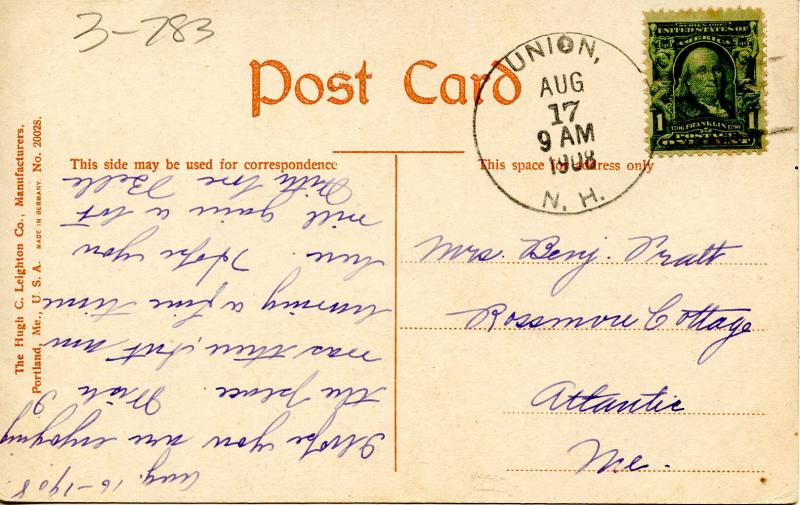 3-783
Post Card
UNION,
AUG
17
9 AM
1908
N. H.
SERIES 1902
UNITED STATES OF
AMERICA
1 1706 FRANKLIN 1790 1
POSTAGE
ONE CENT
This side may be used for correspondence
This space for address only
The Hugh C. Leighton Co., Manufacturers,
Portland, Me., U. S. A. MADE IN GERMANY. No. 20028.
Aug. 16-1908.
I hope you are enjoying
the place. Wish I
was there, but am
having a fine time
here. Hope you
will gain a lot
With love Belle
Mrs. Benj. Pratt
Rossmore Cottage
Atlantic
Me.